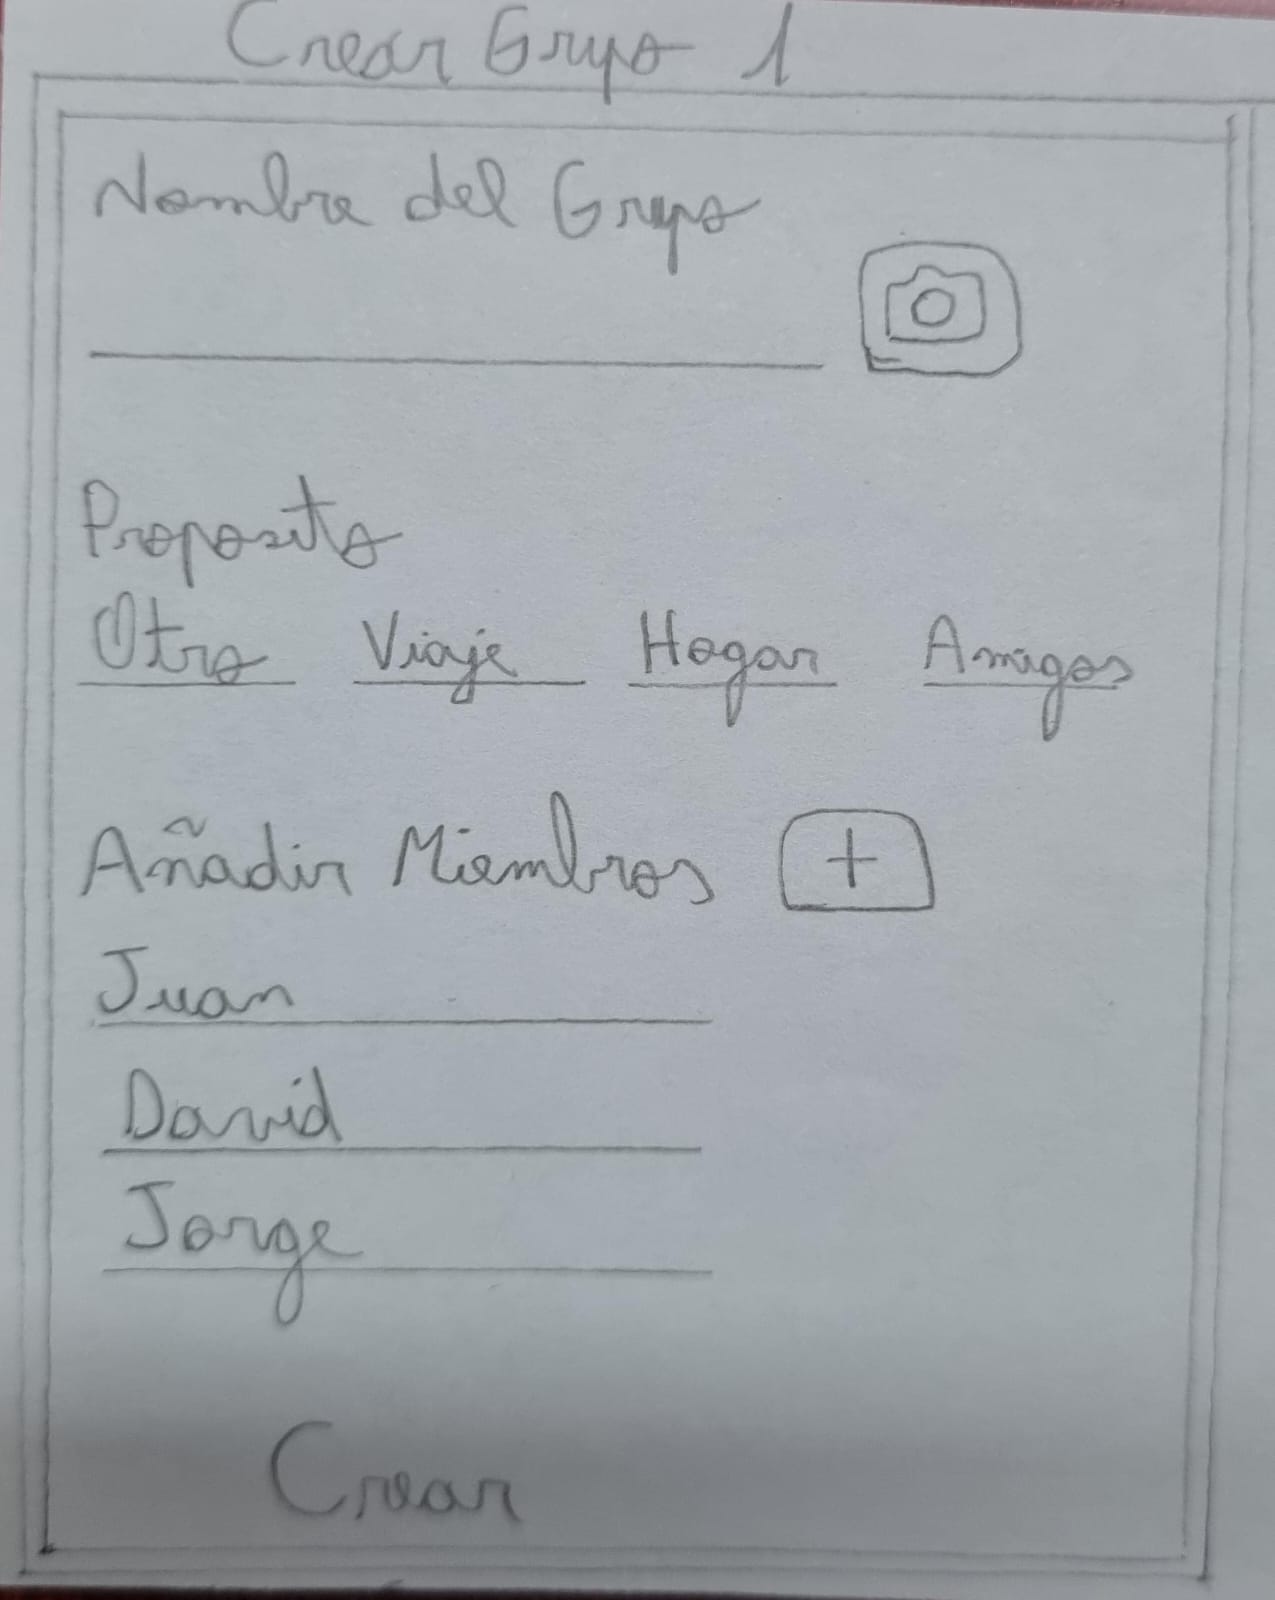 Crear Grupo 1
Nombre del Grupo
Proposito
Otro Viaje Hogar Amigos
Añadir Miembros +
Juan
David
Jorge
Crear